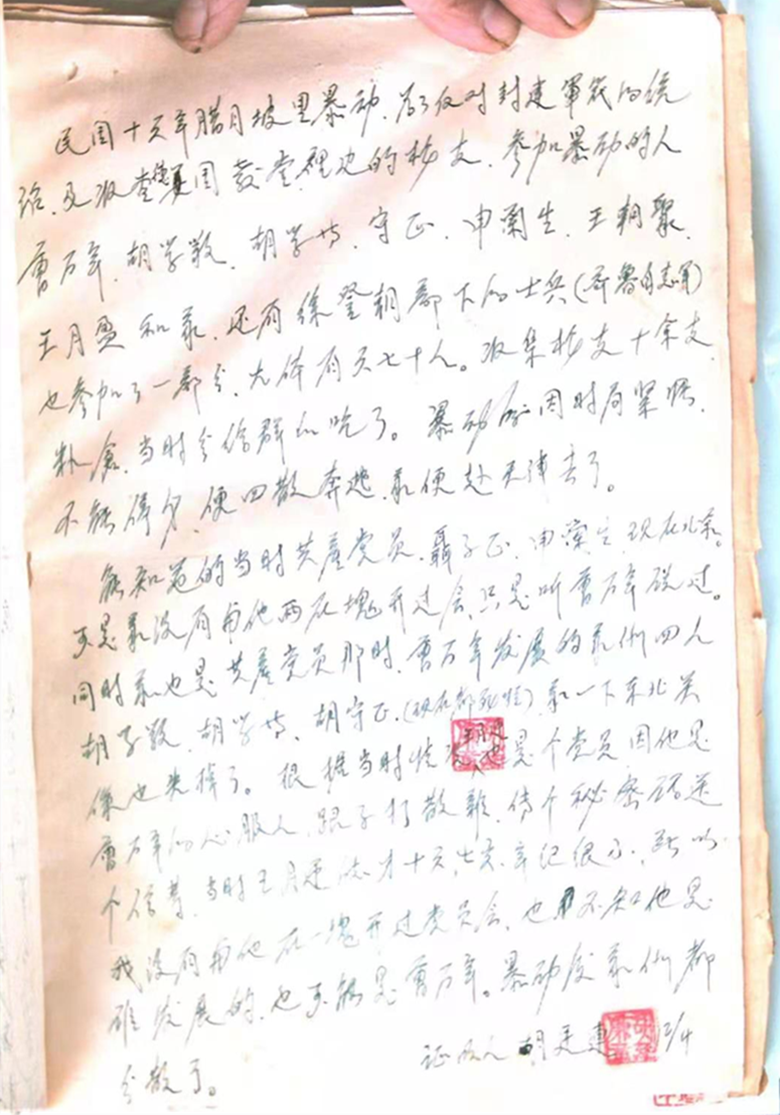 民国十六年腊月坡里暴动,为了反对封建军阀的统
治,及收查德国教堂裡边的枪支,参加暴动的人
曹万年,胡学敬,胡学,守正,申兰生,王朝聚,
王月盈和我,还有徐登朝部下的士兵(齐鲁自志军)
也参加了一部分,大体有六七十人。收集枪支十余支,
当时分给群众吃了。暴动后因时局紧张,
不能停身,便四散奔逃,我便赴天津去了。
能知道的当时共产党员,聂子正,申兰生,现在北京。
可是我没有与他两在塊开过会,只是听曹万年说过。
同时我也是共产党员那时,曹万年发展的我们四人
胡学敬,胡学,胡守正,(现在都死啦)我一下东北关
係也失掉了。根据当时情况也是个党员,因他是
曹万年的心服人,跟了打散难,侍个秘密话送
个信,当时王月才十六,七六,年纪很小,所以
我没有与他在一塊开过党员会,也不知他是
谁发展的,也可能是曹万年。暴动后我们都
分散了。
证明人 胡建 12/4